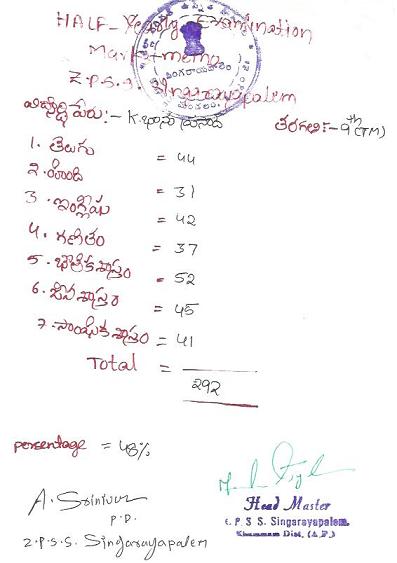 HALF-Yearly Examination
Marks memo
Z.P.S.S. Singarayapalem
విద్యార్థి పేరు:- K. భాను ప్రసాద్ తరగతి:- 9th (TM)
1. తెలుగు = 44
2. హిందీ = 31
3. ఇంగ్లీషు = 42
4. గణితం = 37
5. భౌతికశాస్త్రం = 52
6. జీవశాస్త్రం = 45
7. సాంఘికశాస్త్రం = 41
Total = 292
percentage = 48%
A. Srinivas
P.D.
Z.P.S.S. Singarayapalem
Head Master
Z. P. S. S. Singarayapalem.
Khammam Dist. (A.P.)